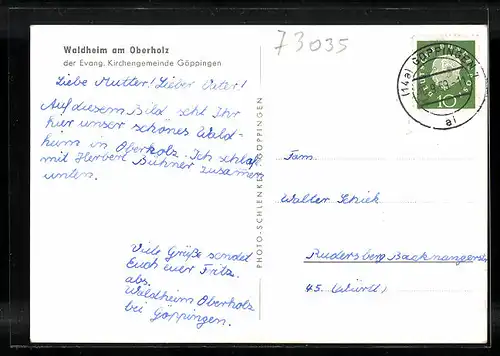 Waldheim am Oberholz
der Evang. Kirchengemeinde Göppingen
73035
Liebe Mutter! Lieber Vater!
Auf diesem Bild seht Ihr
hier unser schönes Wald-
heim in Oberholz. Ich schlafe
mit Herbert Bühner zusammen
unten.
Viele Grüße sendet
Euch euer Fritz.
abs.
Waldheim Oberholz
bei Göppingen.
PHOTO-SCHLENKER GÖPPINGEN
(14a) GÖPPINGEN
ai
10
Fam.
Walter Schiek
Rudersberg Backnangerstr.
45. (Württ)